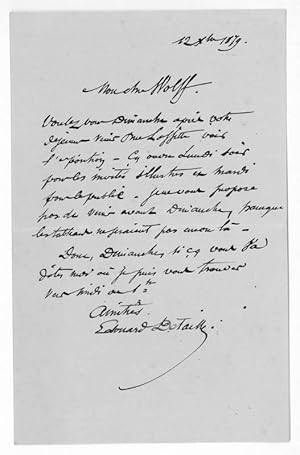 12 Xbre 1879.
Mon cher Wolff.
Voulez vous Dimanche après votre
déjeuner venir rue Laffitte voir
l'exposition - Ça ouvre Lundi soir
pour les invités illustres et mardi
pour le public - Je ne vous propose
pas de venir avant Dimanche, parceque
les tableaux ne seraient pas encore là -
Donc, Dimanche, si ça vous va
dites moi où je puis vous trouver
vers midi ou 1h
Amitiés
Edouard Detaille